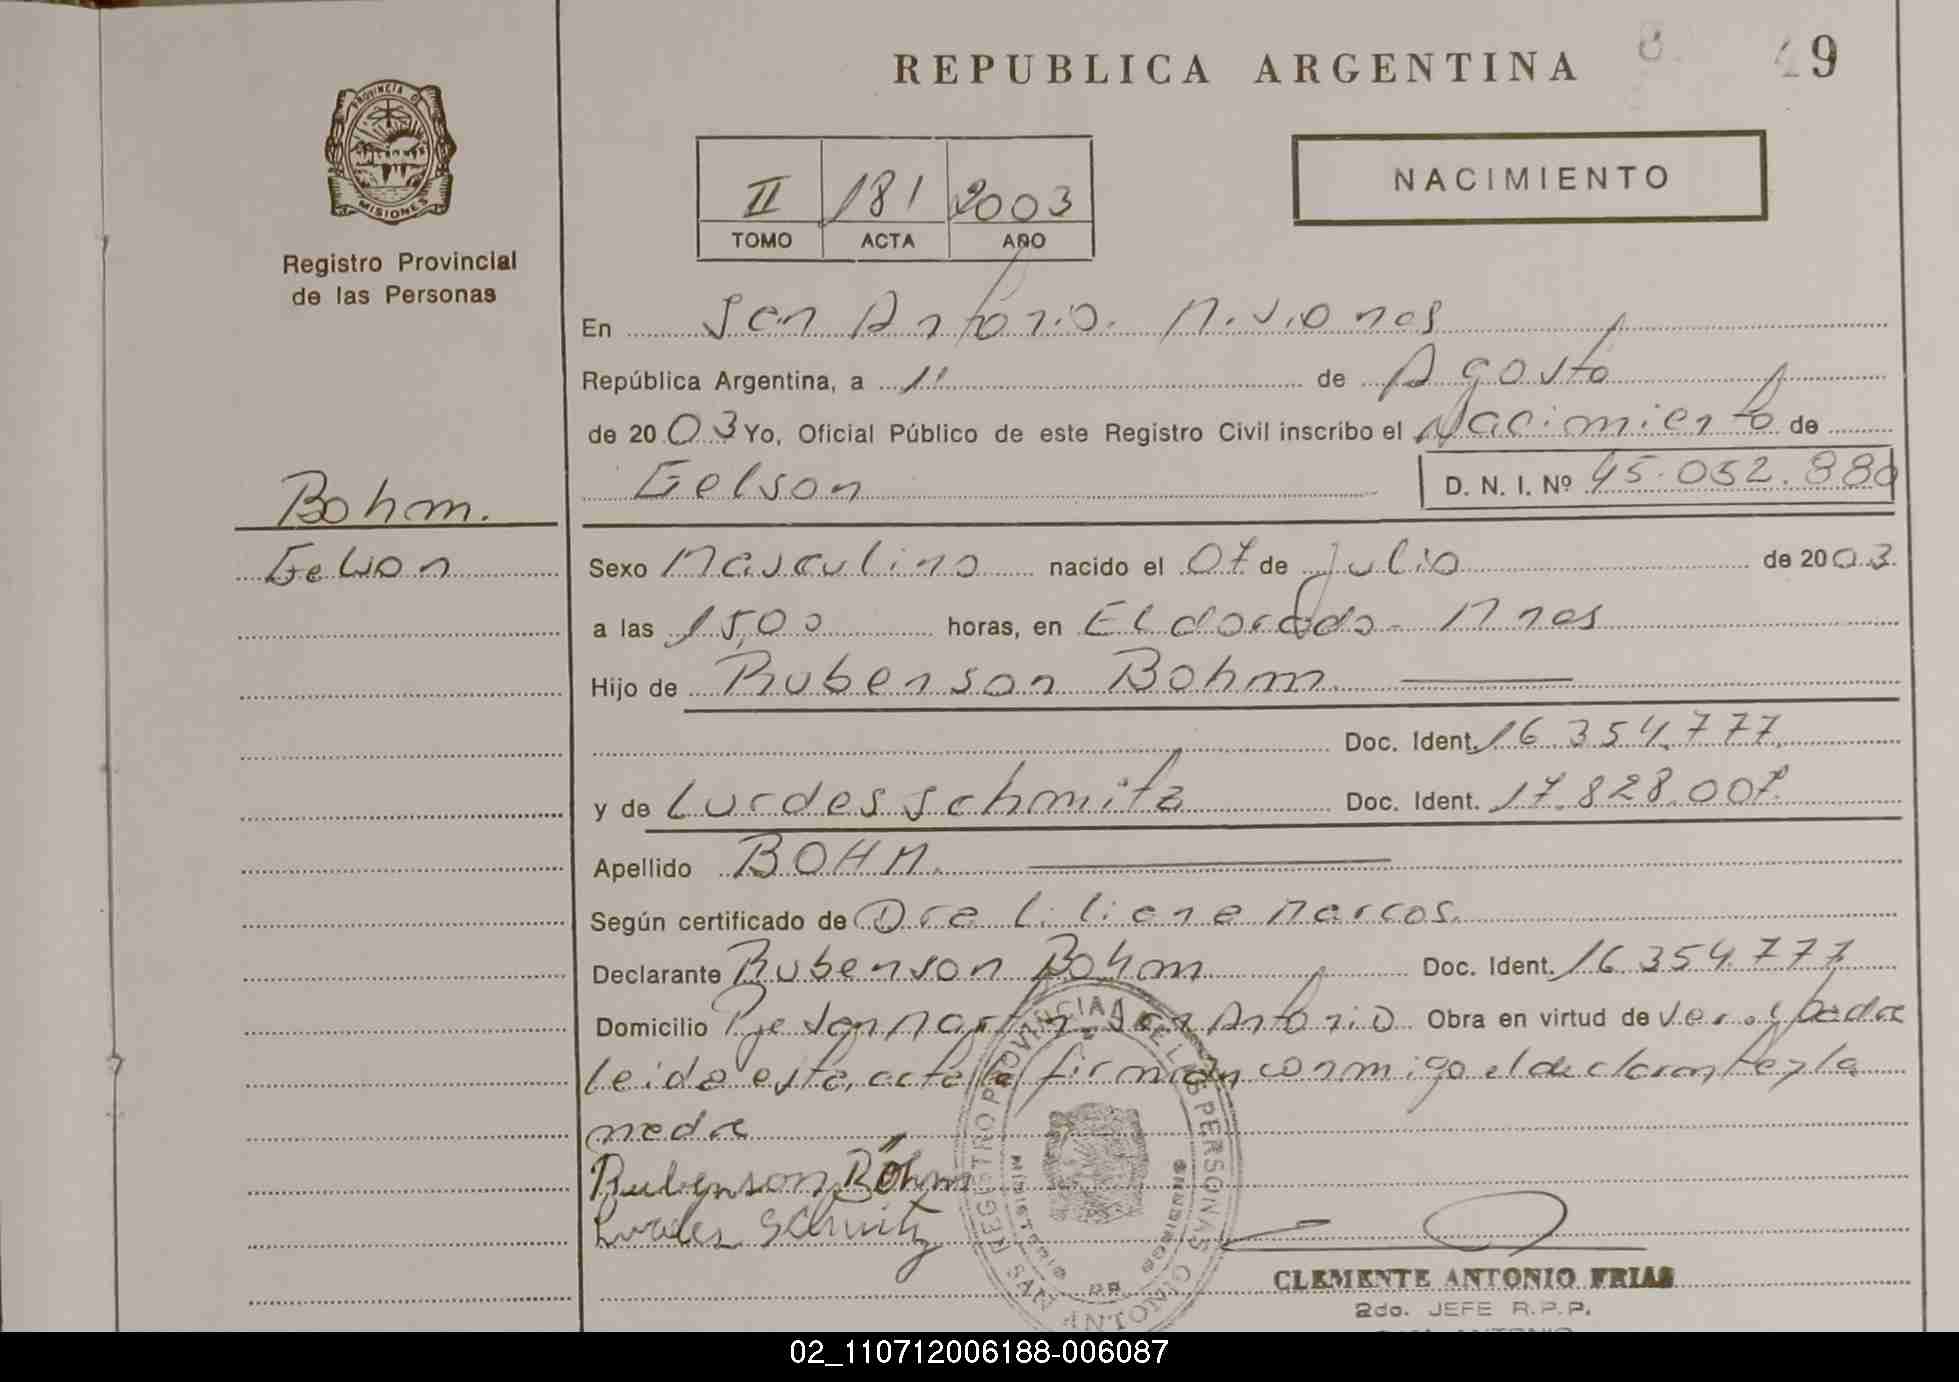 REPUBLICA ARGENTINA
49
PROVINCIA DE
MISIONES
Registro Provincial
de las Personas
II 181 2003
TOMO ACTA AÑO
NACIMIENTO
En San Antonio. Misiones
República Argentina, a 11 de Agosto
de 2003 Yo, Oficial Público de este Registro Civil inscribo el Nacimiento de
Gelson D. N. I. Nº 45.052.880
Bohm.
Gelson
Sexo Masculino nacido el 07 de Julio de 2003.
a las 15,00 horas, en Eldorado - Mnes
Hijo de Rubenson Bohm.
Doc. Ident. 16.354.777
y de Lurdes Schmitz Doc. Ident. 17.828.007.
Apellido BOHM.
Según certificado de Dra Liliana Marcos.
Declarante Rubenson Bohm Doc. Ident. 16.354.777
Domicilio Pje San Martin. San Antonio Obra en virtud de ser el padre
leida este, acta la firman conmigo el declarante y la
madre
Rubenson Böhm
Lurdes Schmitz
REGISTRO PROVINCIAL DE LAS PERSONAS
MINISTERIO DE GOBIERNO
SAN ANTONIO
CLEMENTE ANTONIO FRIAS
2do. JEFE R.P.P.
02_110712006188-006087